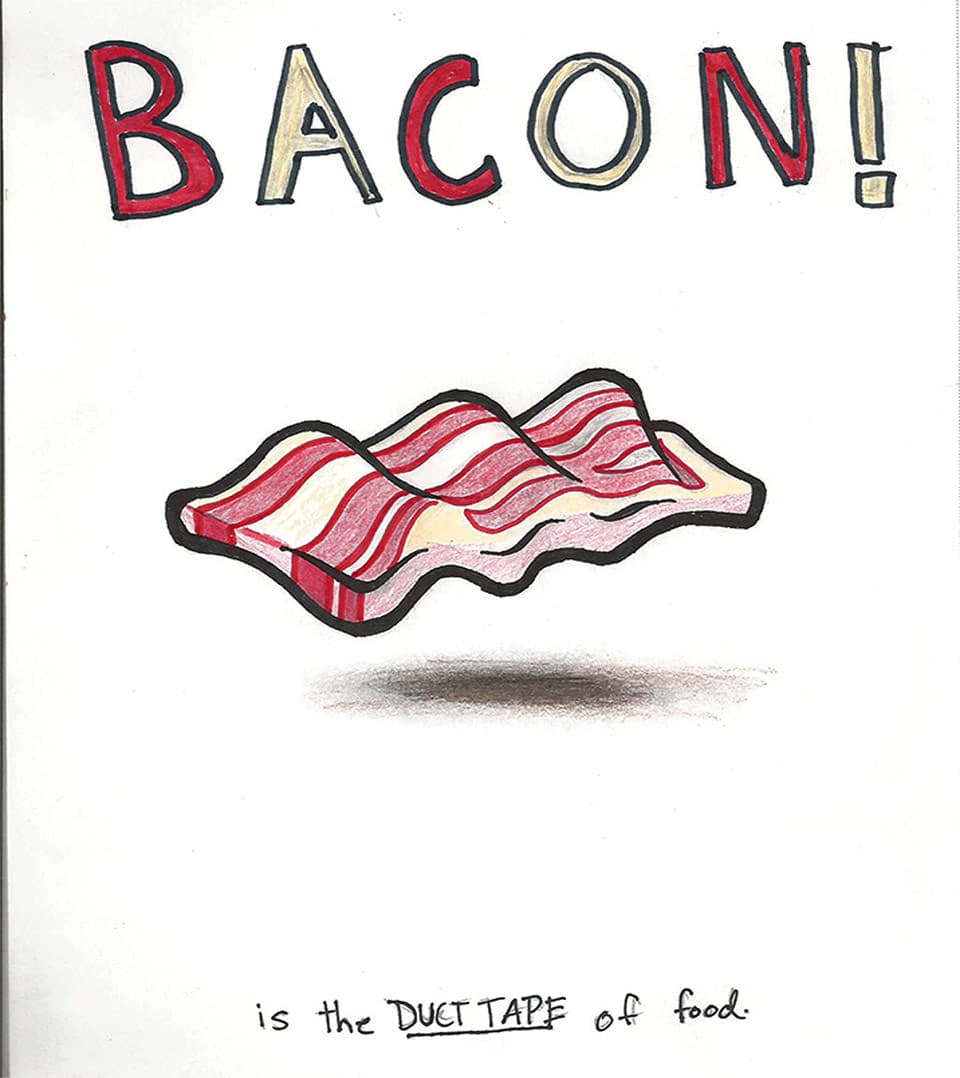 BACON!
is the DUCT TAPE of food.